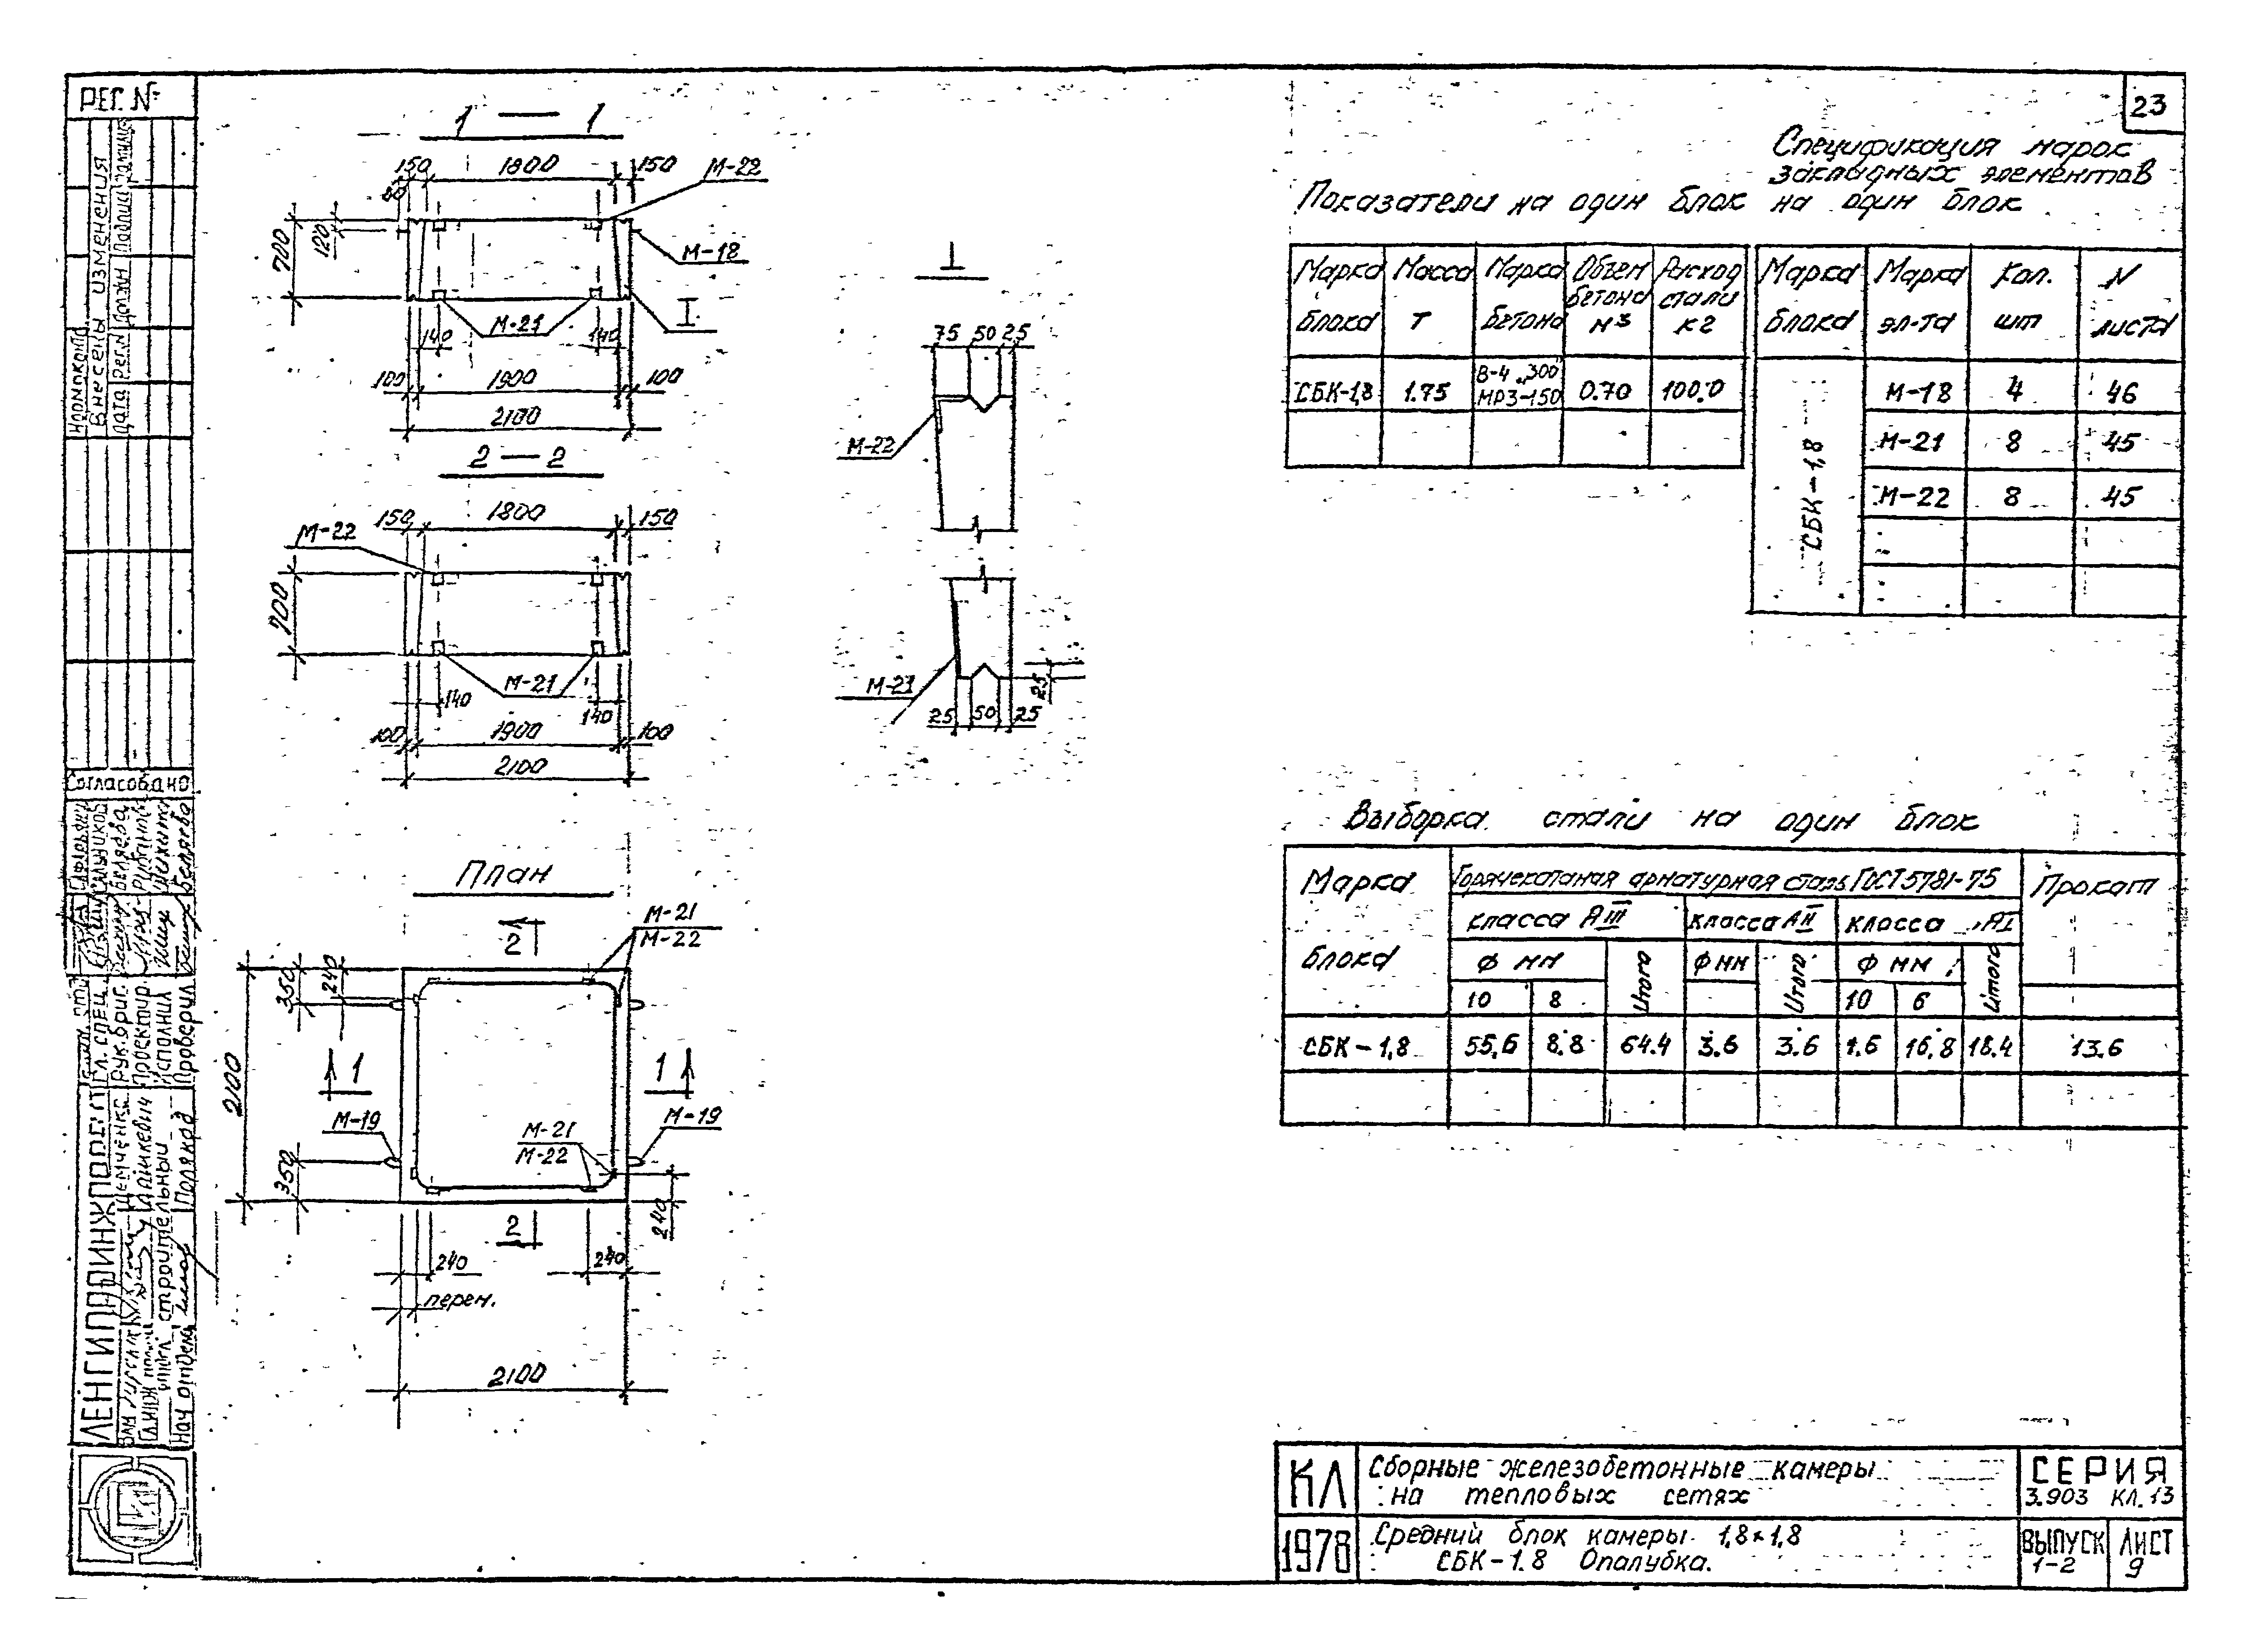 РЕГ. №
23
1 — 1
150 1800 150
М-22
700
120
М-18
М-21
I
140 140
100 1900 100
2100
2 — 2
150 1800 150
М-22
700
М-21
140 140
100 1900 100
2100
I
75 50 25
М-22
М-21
25
25 50 25
План
2
М-21
М-22
350
240
2100
1 1
М-19
М-19
М-21
М-22
350
2
240
240 240
перем.
2100
Спецификация марок
закладных элементов
на один блок
Показатели на один блок
Марка блока Масса т Марка бетона Объем бетона м3 Расход стали кг
СБК-1,8 1.75 В-4 „300 МРЗ-150 0.70 100.0
Марка блока Марка эл-та Кол. шт N листа
СБК-1,8 М-18 4 46
М-21 8 45
М-22 8 45
Выборка стали на один блок
Марка блока Горячекатаная арматурная сталь ГОСТ 5781-75 Прокат
класса АIII класса АII класса АI
Ф мм Итого Ф мм Итого Ф мм Итого
10 8 10 6
СБК-1,8 55,6 8.8 64.4 3.6 3.6 1.6 16,8 18.4 13.6
КЛ Сборные железобетонные камеры СЕРИЯ
на тепловых сетях 3.903 КЛ.13
1978 Средний блок камеры 1,8×1,8 ВЫПУСК ЛИСТ
СБК-1.8 Опалубка. 1-2 9
Нормоконтр.
Внесены изменения
Дата Рег.N Долж Подписи
Согласовано
Гл. спец.
Рук. бриг. Беляева
Проектир.
Исполнил
Проверил Беляева